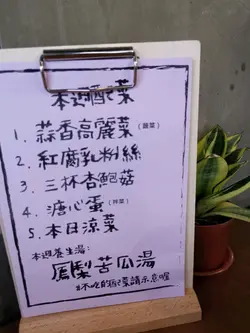 本週配菜
1. 蒜香高麗菜(蔬菜)
2. 紅腐乳粉絲
3. 三杯杏鮑菇
4. 溏心蛋
5. 本日涼菜
本週養生湯:
鳳梨苦瓜湯
#不吃的配菜請示意喔